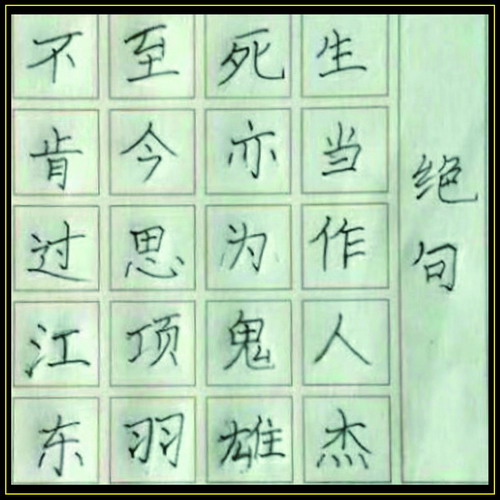 绝句
生当作人杰
死亦为鬼雄
至今思项羽
不肯过江东